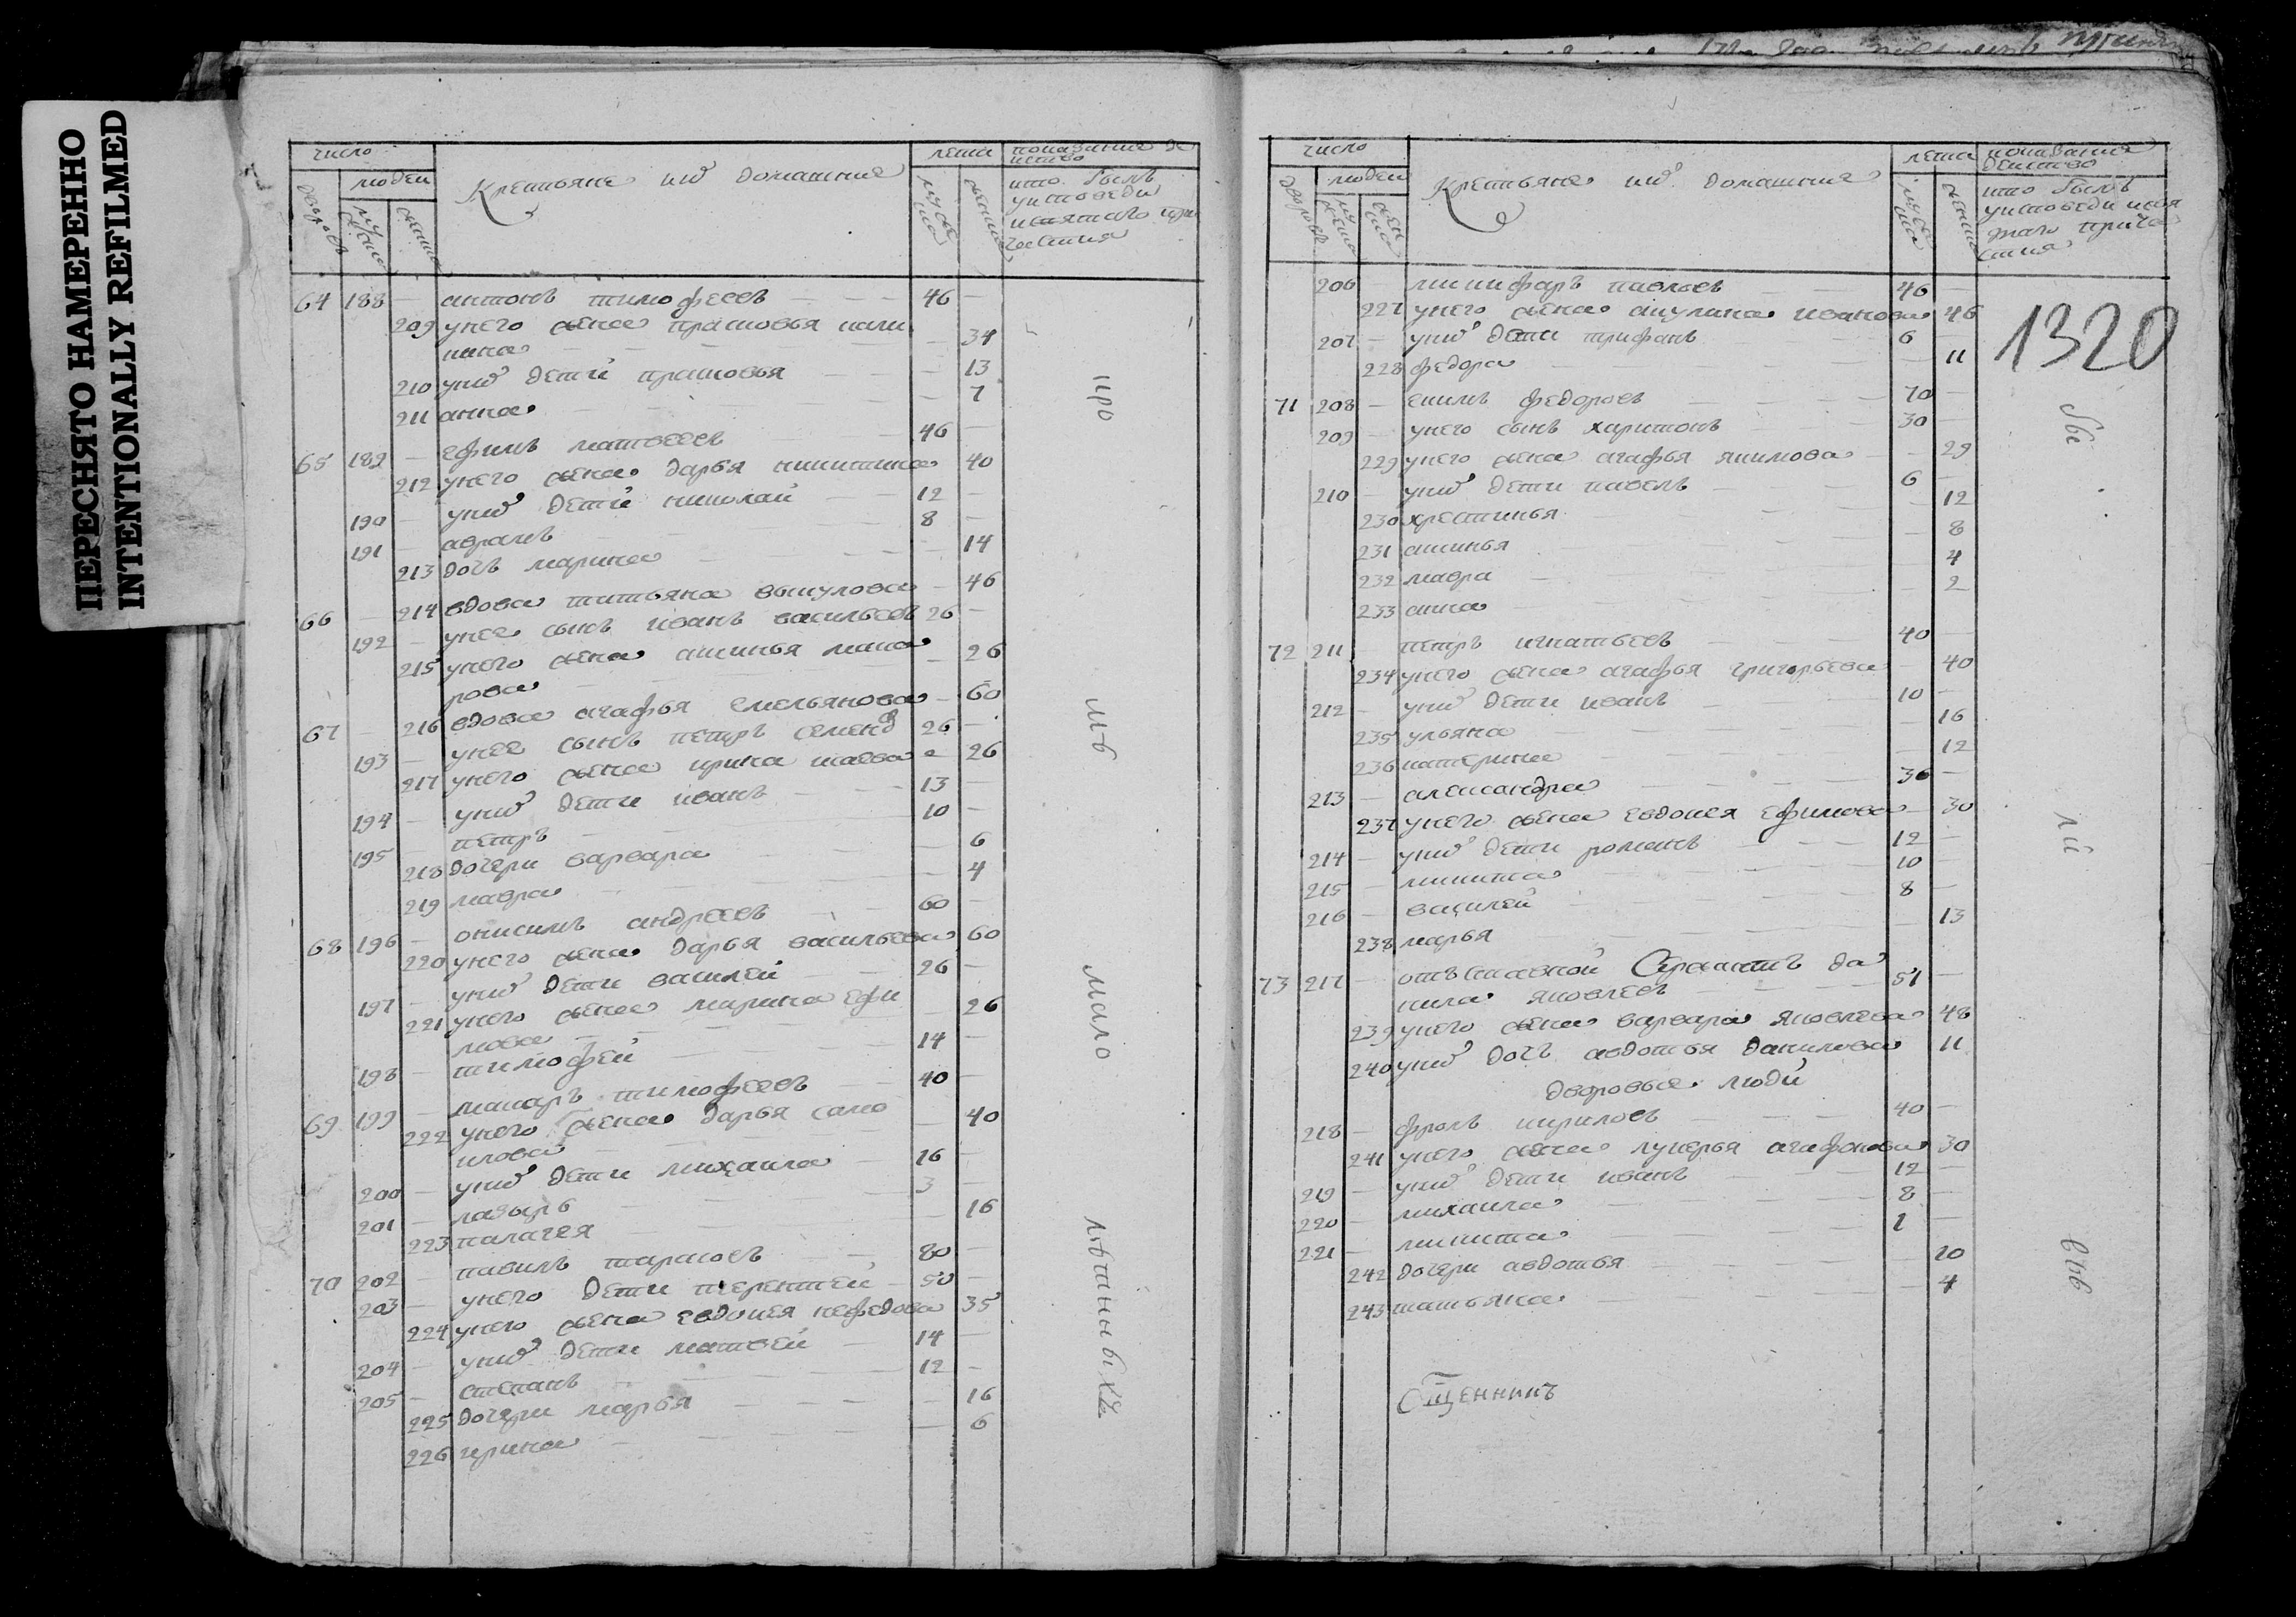 ПЕРЕСНЯТО НАМЕРЕННО
INTENTIONALLY REFILMED
число
людей
Крестьяне ихъ домашние
лета
64 188 — антонъ тимофеевъ — 46 —
209 унего жена прасковья кали
нина — 34
210 унихъ дети прасковья — 13
211 анна — 7
65 189 — ефимъ матвеевъ — 46 —
212 унего жена дарья никитина 40
190 — унихъ дети николай — 12 —
191 — аврамъ — 8 —
213 дочь марина — 14
66 — 214 вдова татьяна викулова — 46
192 — унее сынъ иванъ васильевъ 26 —
215 унего жена аксинья мака
рова — 26
67 — 216 вдова агафья емельянова — 60
193 — унее сынъ петръ семенов 26 —
217 унего жена ирина 26
194 — унихъ дети иванъ — 13 —
195 — петръ — 10 —
218 дочери варвара — 6
219 мавра — 4
68 196 — онисимъ андреевъ — 60 —
220 унего жена дарья васильева 60
197 — унихъ дети василей — 26 —
221 унего жена марина ефи
мова — 26
198 — тимофей — 14 —
69 199 — макаръ тимофеевъ — 40 —
222 унего жена дарья само
илова — 40
200 — унихъ дети михаила — 16 —
201 — лазырь — 3 —
223 палагея — 16
70 202 — павилъ тарасовъ — 80 —
203 — унего дети терентей — 50 —
224 унего жена евдокея нефедова 35
204 — унихъ дети матвей — 14 —
205 — степанъ — 12 —
225 дочери марья — 16
226 ирина — 6
про
мѣ
мало
лѣтныхъ
число
людей
Крестьяне ихъ домашние
лета
1320
206 — никифаръ павловъ — 46 —
227 унего жена акулина иванова 46
207 — унихъ дети трифанъ 6
228 федора — 11
71 208 — екимъ федоровъ — 70 —
209 — унего сынъ харитонъ — 30 —
229 унего жена агафья якимова — 29
210 — унихъ дети павелъ — 6 —
230 хрестинья — 12
231 аксинья — 8
232 мавра — 4
233 анна — 2
72 211 — петръ игнатьевъ — 40 —
234 унего жена агафья григорьева — 40
212 — унихъ дети иванъ — 10 —
235 ульяна — 16
236 катерина — 12
213 — александра — 36 —
237 унего жена евдокея ефимова — 30
214 — унихъ дети романъ — 12 —
215 — никита — 10 —
216 — василей — 8 —
238 марья — 13
73 217 — отъставной Сержантъ да
нила яковлевъ — 51 —
239 унего жена варвара яковлева 48
240 унихъ дочь авдотья данилова 11
дворовые люди
218 — фролъ кириловъ — 40 —
241 унего жена лукерья агафонова 30
219 — унихъ дети иванъ — 12 —
220 — михаила — 8 —
221 — никита — 1 —
242 дочери авдотья — 20
243 татьяна — 4
бы
лй
всѣ
Сщенникъ